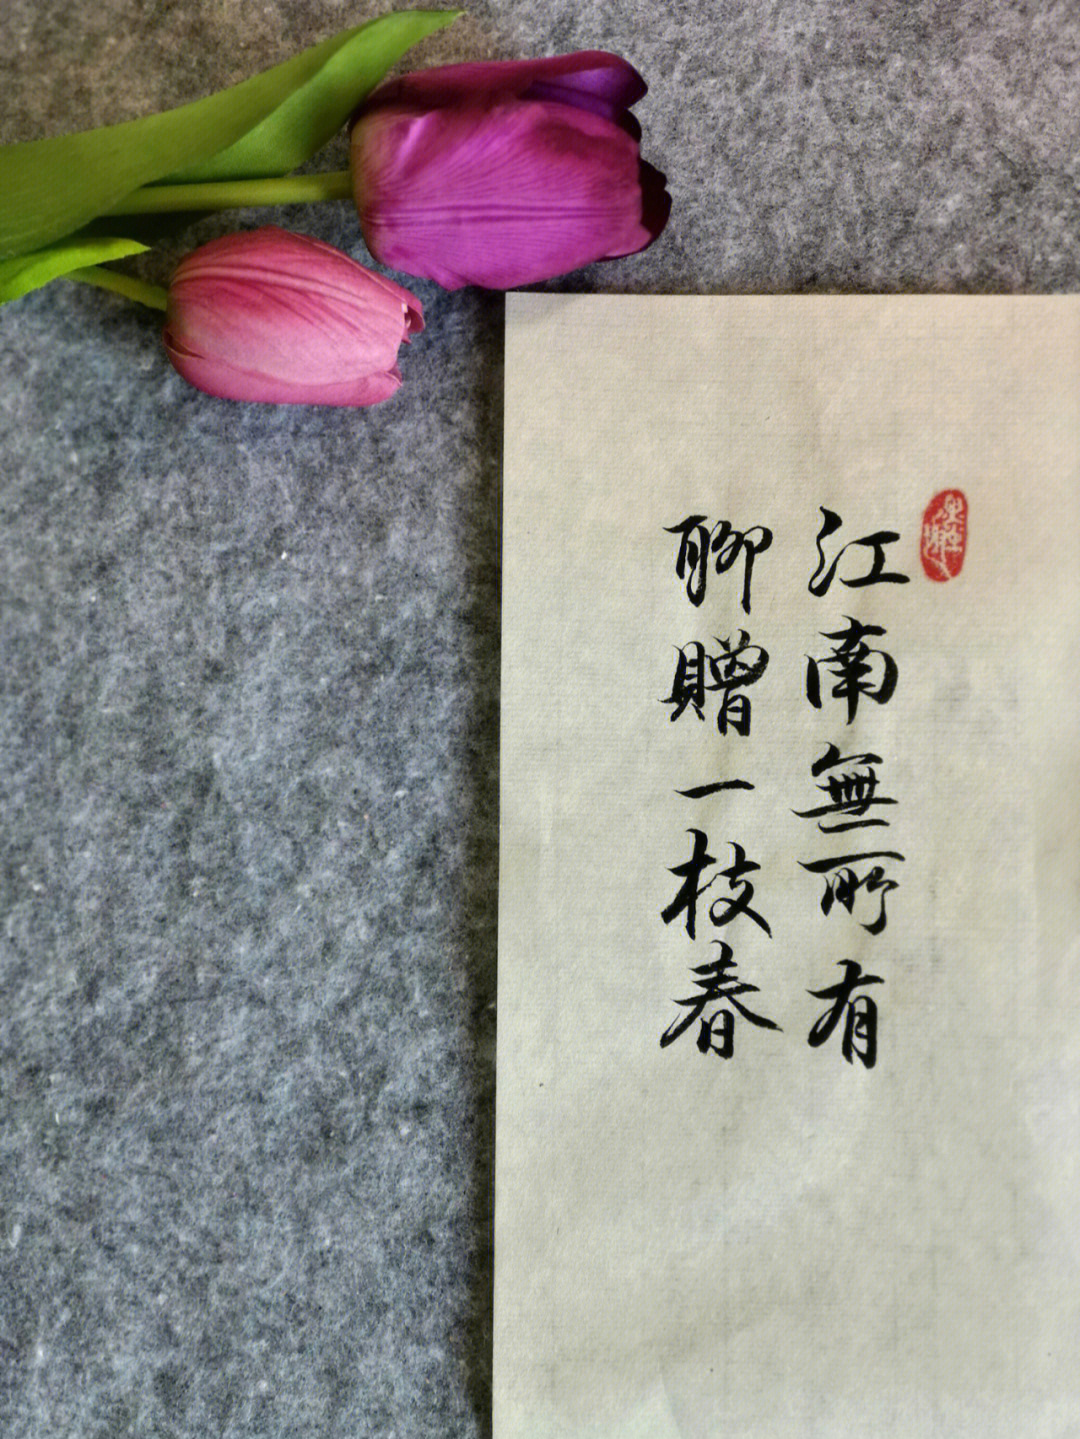 江南無所有
聊贈一枝春